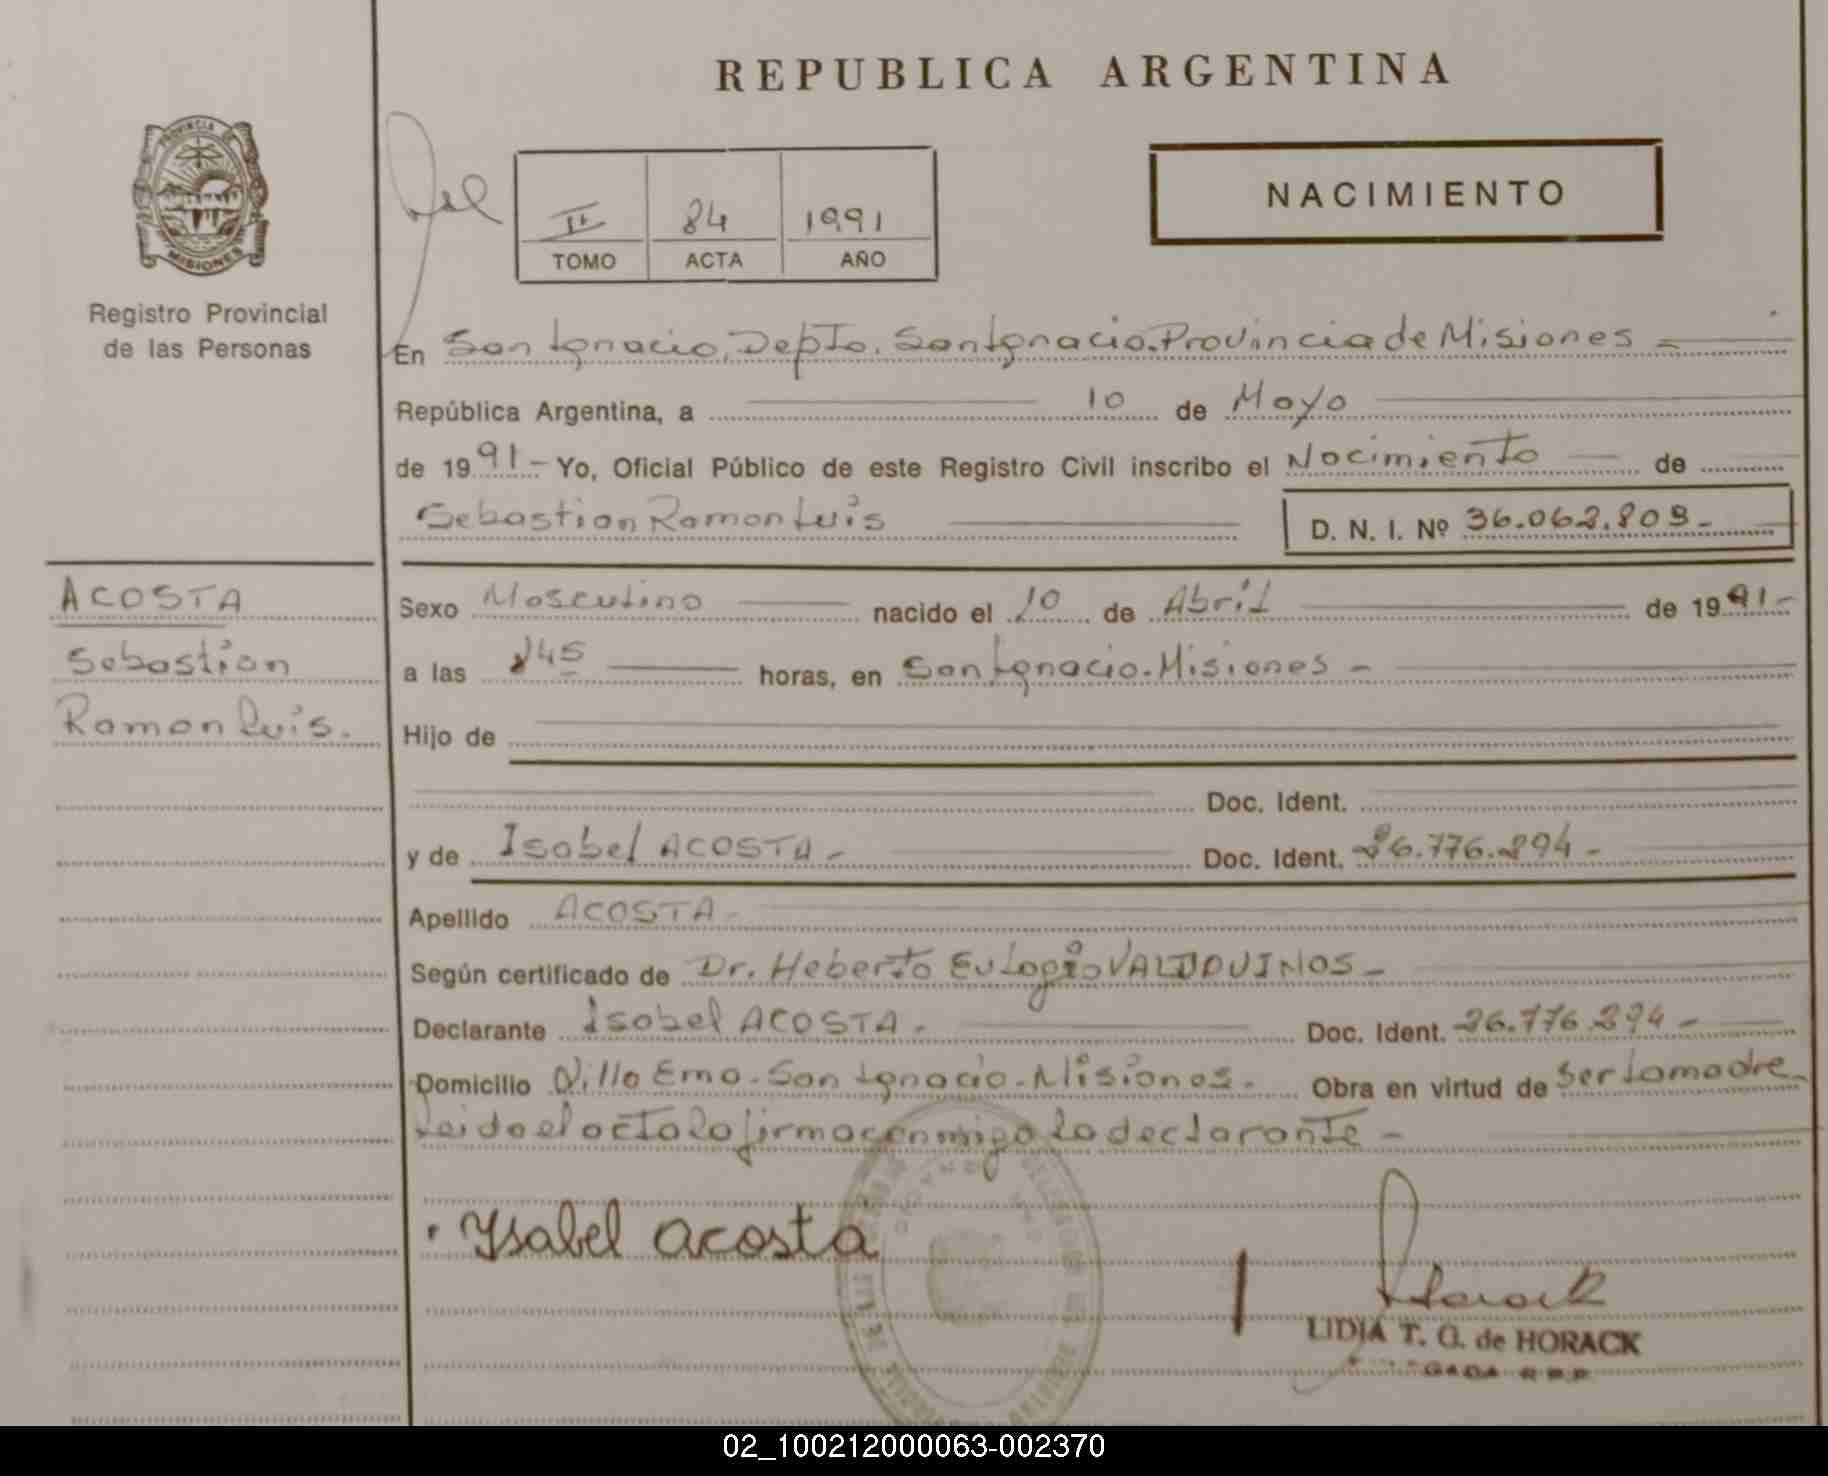 REPUBLICA ARGENTINA
PROVINCIA DE
MISIONES
Registro Provincial
de las Personas
II 84 1991
TOMO ACTA AÑO
NACIMIENTO
En San Ignacio, Depto. San Ignacio. Provincia de Misiones -
República Argentina, a 10 de Mayo
de 1991 - Yo, Oficial Público de este Registro Civil inscribo el Nacimiento de
Sebastian Ramon Luis D. N. I. Nº 36.062.809 -
ACOSTA
Sebastian
Ramon Luis.
Sexo Masculino nacido el 10 de Abril de 1991 -
a las 45 horas, en San Ignacio. Misiones -
Hijo de
Doc. Ident.
y de Isabel ACOSTA - Doc. Ident. 26.776.294 -
Apellido ACOSTA -
Según certificado de Dr. Heberto Eulogio VALDOVINOS -
Declarante Isabel ACOSTA. Doc. Ident. 26.776.294 -
Domicilio Villa Ema. San Ignacio. Misiones. Obra en virtud de ser la madre.
Leido el acta la firma conmigo la declarante -
Ysabel acosta
Horack
LIDIA T. G. de HORACK
02_100212000063-002370